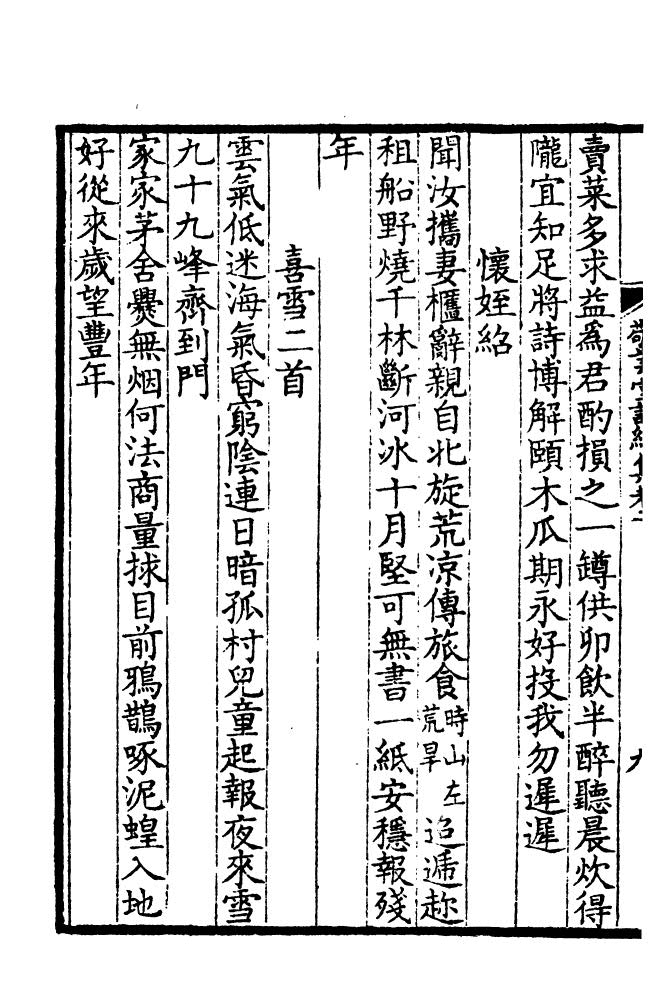 賣菜多求益為君酌損之一罇供卯飲半醉聽晨炊得
隴宜知足將詩博解頤木瓜期永好投我勿遲遲
懷姪紹
聞汝攜妻櫬辭親自北旋荒凉傳旅食時山左荒旱迢遞趂
租船野燒千林斷河冰十月堅可無書一紙安穩報殘
年
喜雪二首
雲氣低迷海氣昏窮陰連日暗孤村兒童起報夜來雪
九十九峰齊到門
家家茅舍爨無烟何法商量捄目前鴉鵲啄泥蝗入地
好從來歲望豐年